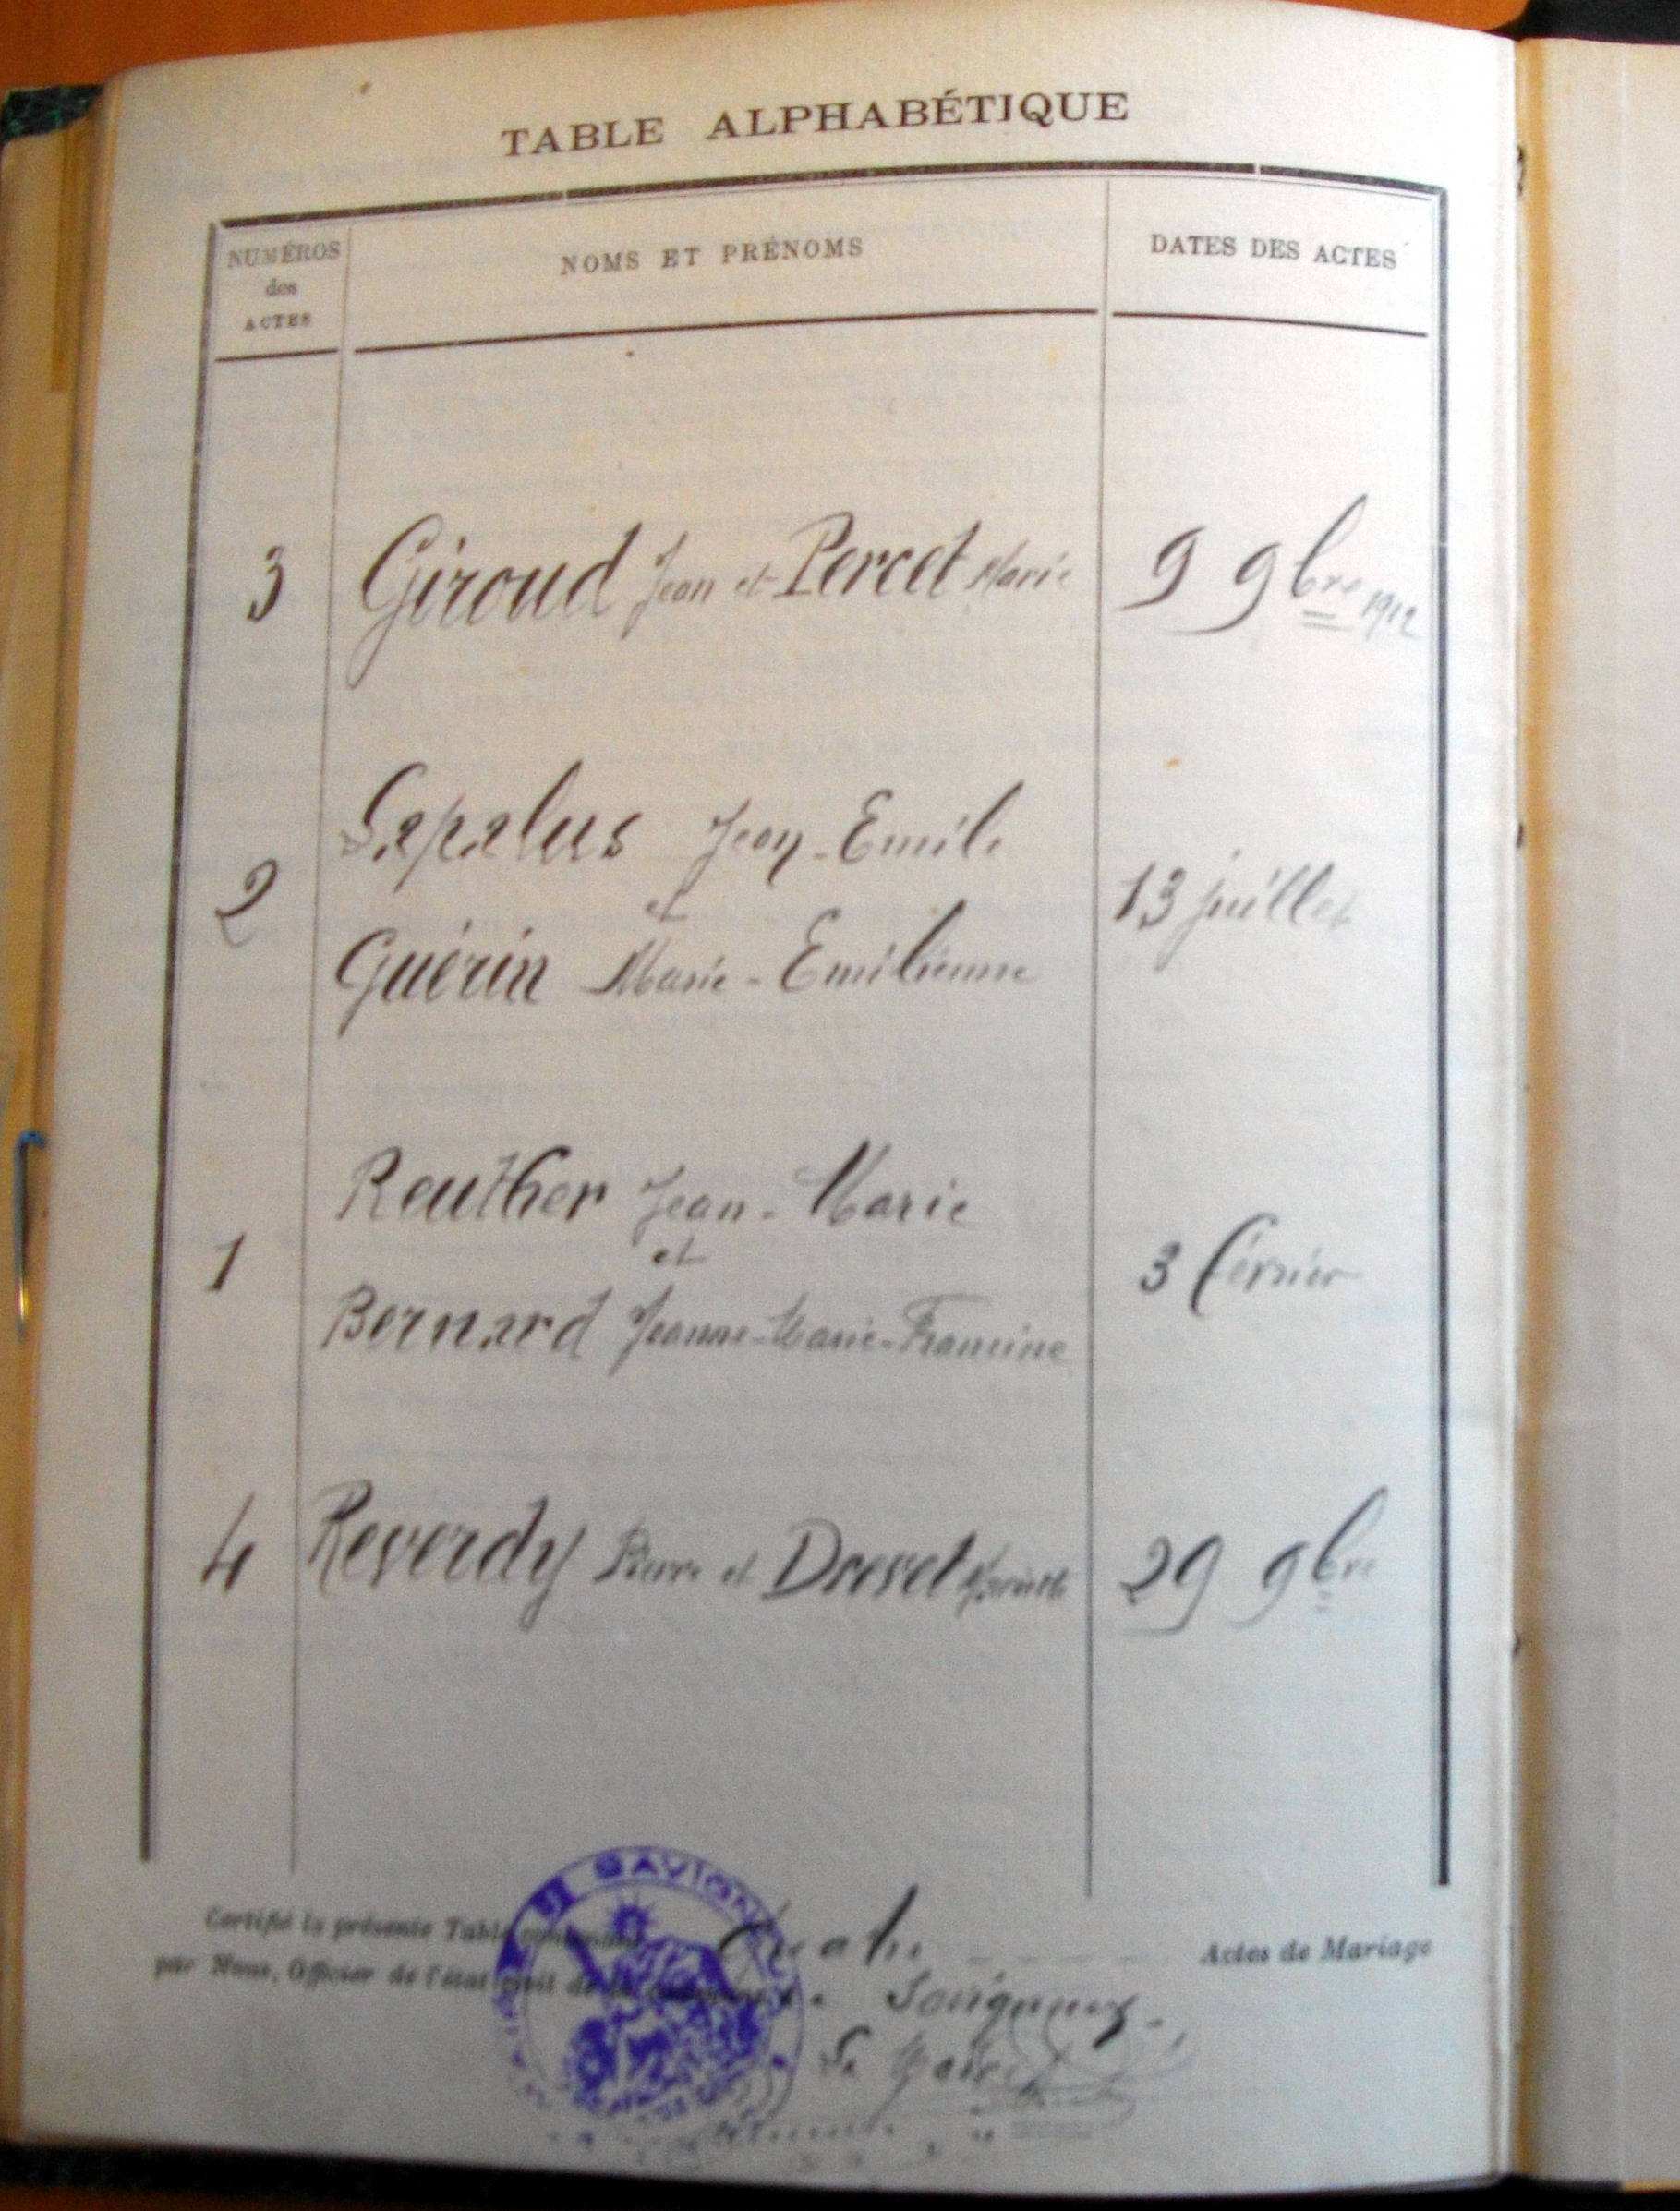 TABLE ALPHABÉTIQUE
NUMÉROS
des
ACTES
NOMS ET PRÉNOMS
DATES DES ACTES
3 Giroud Jean et Percet Marie 9 9bre 1912
Lapalus Jean-Emile
et
2 13 juillet
Guérin Marie-Emilienne
Reuther Jean-Marie
et
1 3 février
Bernard Jeanne-Marie-Francine
4 Reverdy Pierre et Drevet 29 9bre
SAVIGN
Certifié la présente Table contenant quatre Actes de Mariage
par Nous, Officier de l'état civil de la commune de Savigneux
Le Maire